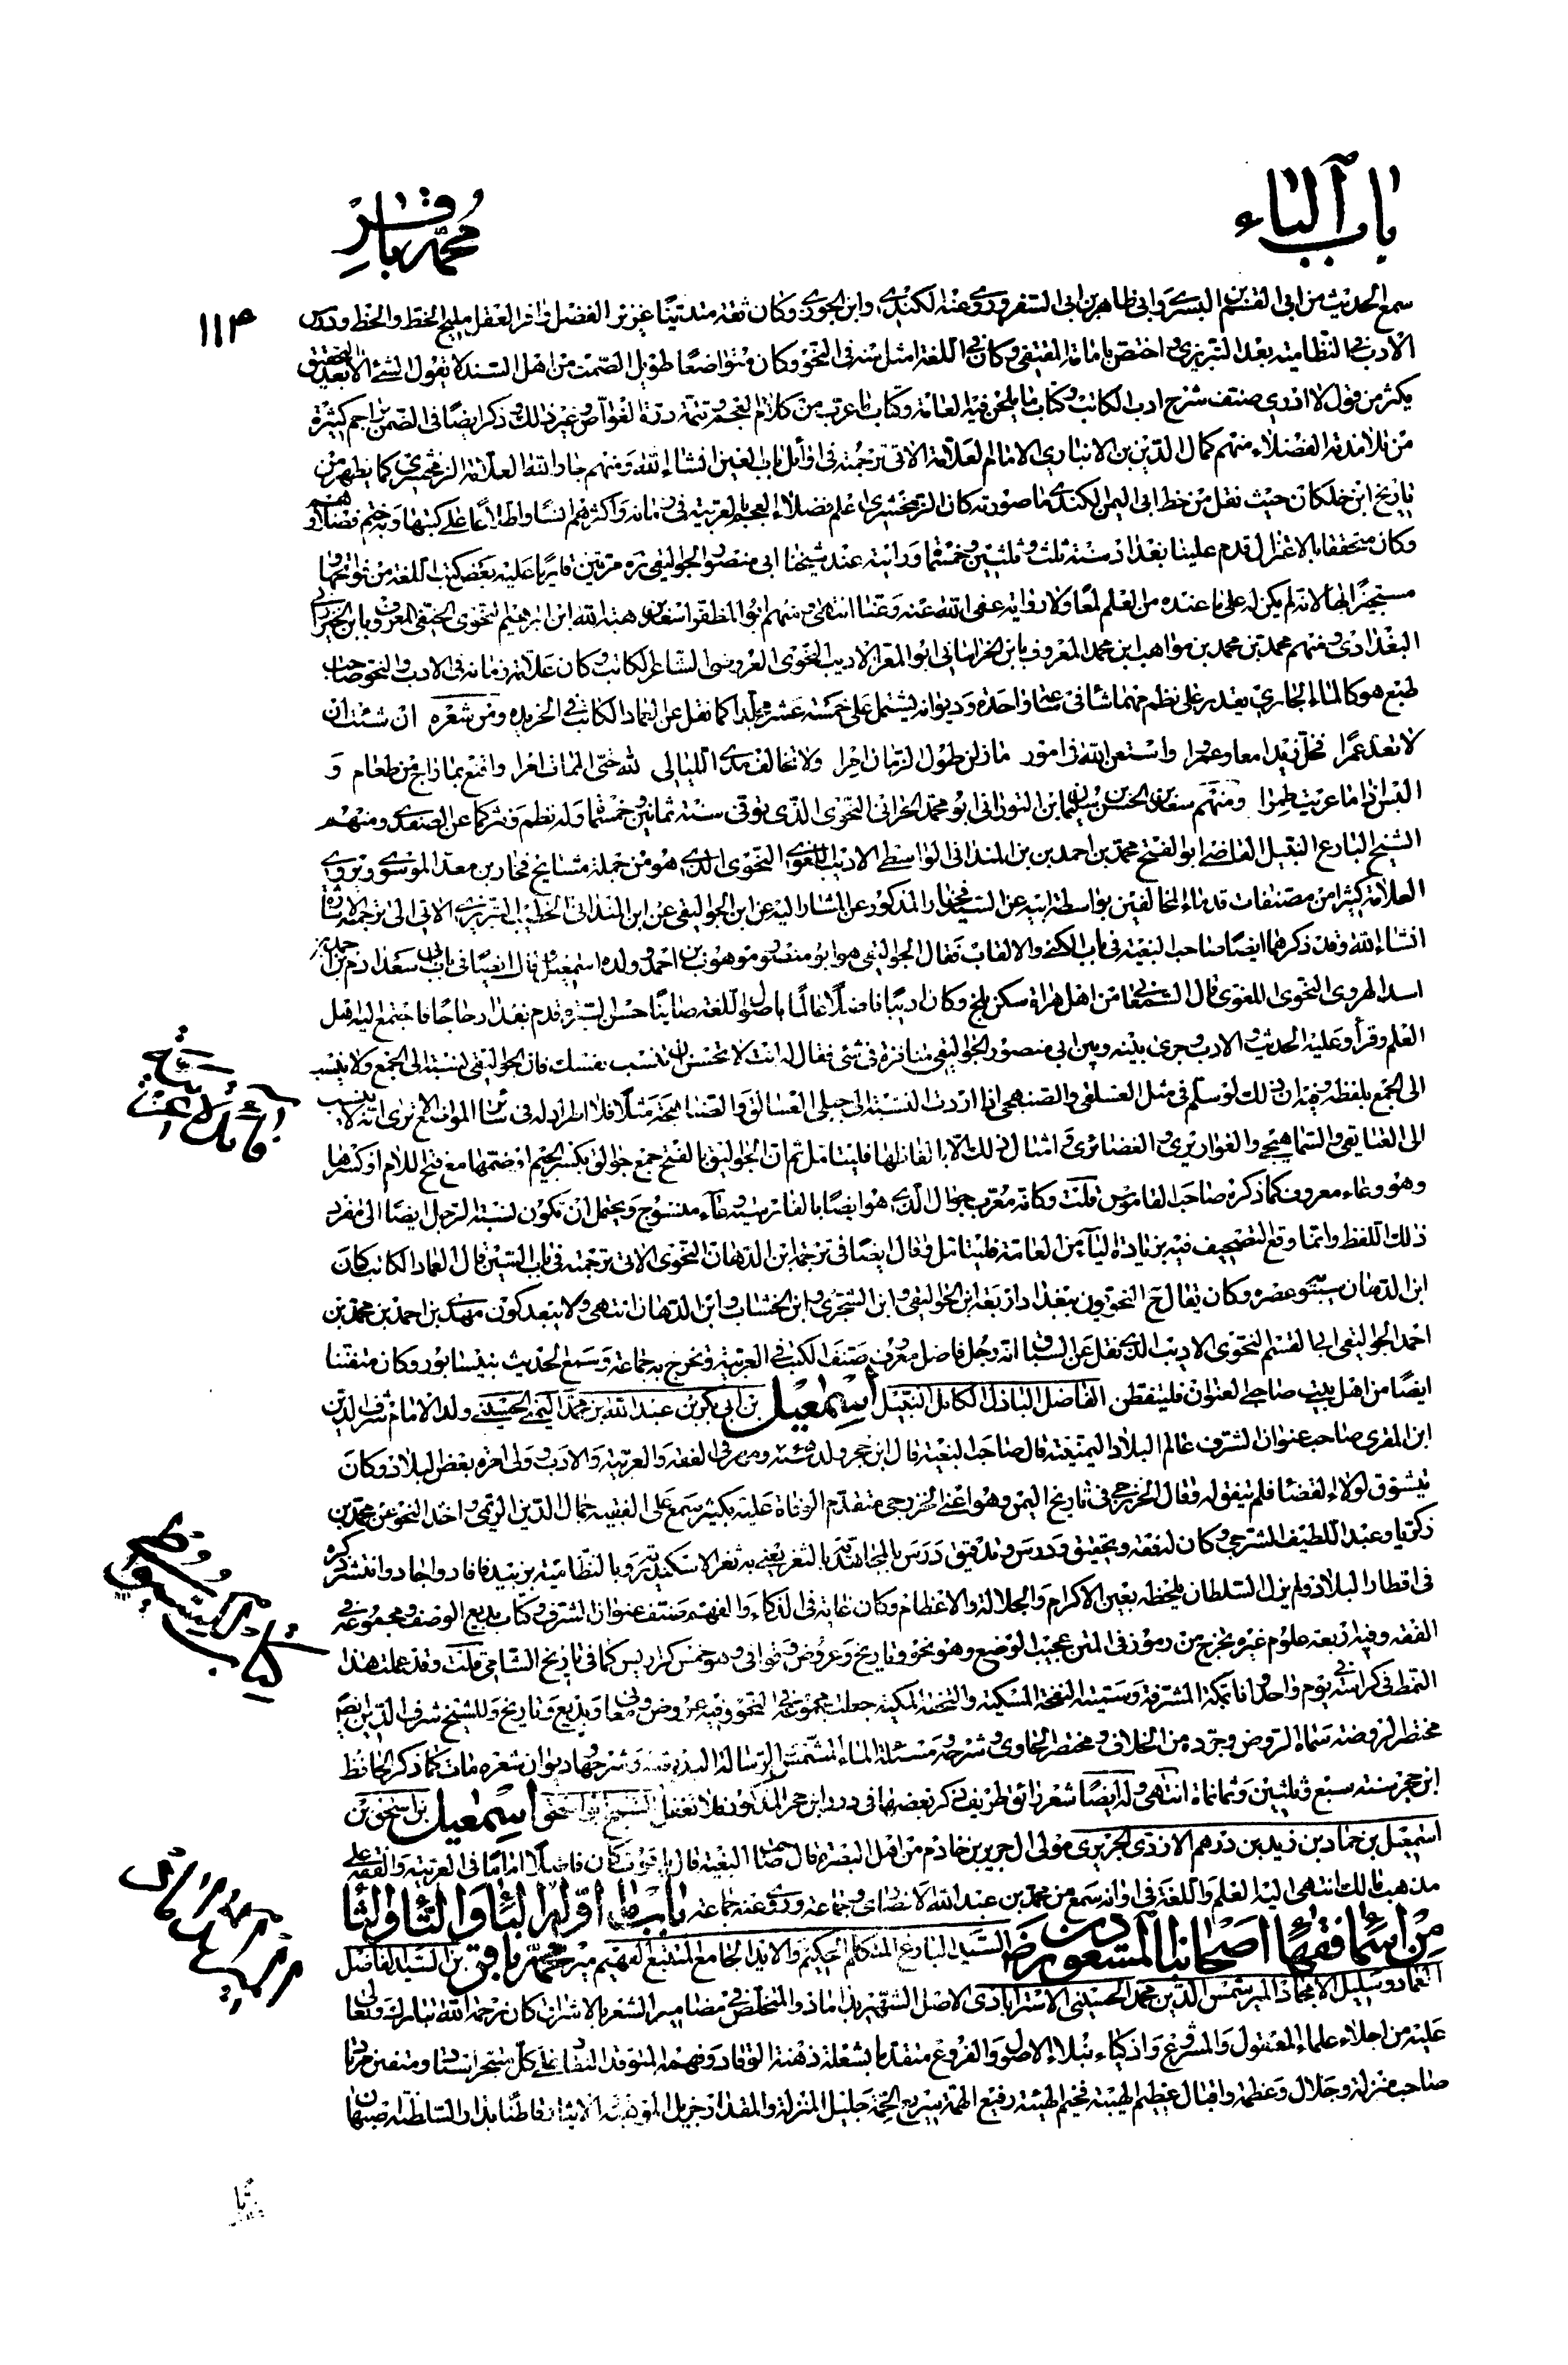 باب الباء
محمد باقر
١١٣
سمع الحديث من ابى القسم بن البسرى وابى طاهر بن ابى السقر وروى عنه الكندى وابن الجوزى وكان ثقة متدينا غزير الفضل وافر العقل مليح الخط والحظ ودرس
الادب فى النظامية بعد التبريزى واختص بامامة المقتفى وكان فى اللغة امثل منه فى النحو وكان متواضعا طويل الصمت من اهل السنة لا يقول الشئ الا بعد التحقيق
يكثر من قول لا ادرى صنف شرح ادب الكاتب وكتاب ما يلحن فيه العامة وكتاب ما عرب من كلام العجم وتتمة درة الغواص وغير ذلك وذكر ايضا فى الضمن تراجم كثيرة
من تلامذته الفضلاء منهم كمال الدين بن الانبارى الامام العلامة الاتى ترجمته فى اوائل باب العين انشاء الله ومنهم جار الله العلامة الزمخشرى كما يظهر من
تاريخ ابن خلكان حيث نقل من خط ابى اليمن الكندى ما صورته كان الزمخشرى اعلم فضلاء العجم بالعربية فى زمانه واكثرهم انسا واطلاعا على كتبها وبه ختم فضلاؤهم
وكان متحققا بالاعتزال قدم علينا بغداد سنة ثلث وثلثين وخمسمائة ورايته عند شيخنا ابى منصور الجواليقى ره مرتين قاريا عليه بعض كتب اللغة من فواتحها و
مستجيزا لها لانه لم يكن له على ما عنده من العلم لقاء ولا رواية عفى الله عنه وعنا انتهى ومنهم ابو المظفر اسعد بن هبة الله ابن ابرهيم النحوى الحنفى المعروف بابن الخيزرانى
البغدادى ومنهم محمد بن محمد بن مواهب ابن محمد المعروف بابن الخراسانى ابو المعز الاديب النحوى العروضى الشاعر الكاتب وكان علامة زمانه فى الادب والنحو صاحب
طبع هو كالماء الجارى يقدر على نظم مهما شاء فى ساعة واحدة وديوانه يشتمل على خمسة عشر مجلدا كما نقل عن العماد الكاتب فى الخريدة ومن شعره ان شئت ان
لا تعد غمرا فخل زيدا معا وعمرا واستعن الله فى امور ما زلن طول الزمان امرا ولا تخالف مدى الليالى لله حتى الممات امرا واقنع بما راج من طعام و
البس اذا ما عريت طمرا ومنهم سعيد بن الحسن بن سليمان التورانى ابو محمد الحرانى النحوى الذى توفى سنة ثمانين وخمسمائة وله نظم ونثر كما عن الصفدى ومنهم
الشيخ البارع النبيل القاضى ابو الفتح محمد بن احمد بن المندانى الواسطى الاديب اللغوى النحوى الذى هو من جملة مشايخ فخار بن معد الموسوى ويروى
العلامة كثيرا من مصنفات قدماء المخالفين بواسطة ابيه عن السيد فخار المذكور عن المشار اليه عن ابن الجواليقى عن ابن المندانى الخطيب التبريزى الاتى الى ترجمته الاشارة
انشاء الله وقد ذكرهما ايضا صاحب البغية فى باب الكنى والالقاب فقال الجواليقى هو ابو منصور موهوب بن احمد وولده اسمعيل وقال ايضا فى باب سعد ادم بن
اسد الهروى النحوى اللغوى قال السمعانى من اهل هراة سكن بلخ وكان اديبا فاضلا عالما باصول اللغة صاينا حسن السيرة قدم بغداد حاجا فاجتمع اليه اهل
العلم وقرأوا عليه الحديث والادب وجرى بينه وبين ابى منصور الجواليقى منافرة فى شئ فقال له انت لا تحسن ان تنسب نفسك فان الجواليقى نسبة الى الجمع ولا ينسب
الى الجمع بلفظه وفيه ان ذلك لو سلم فى مثل العسلقى والصنهجى اذا اردت النسبة الى جبلى العسالق والصناهجة مثلا فلا اطراد له فى ساير الموانع الا ترى انه لا ينسب
الى العنايقى والسماهيجى والقواريرى والغضائرى فى امثال ذلك الا بالفاظها فليتامل ثم ان الجواليق بالفتح جمع جوالق بكسر الجيم او ضمها مع فتح اللام او كسرها
وهو وعاء معروف كما ذكره صاحب القاموس قلت وكانه معرب جوال الذى هو ايضا بالفارسية وعاء منسوج ويحتمل ان تكون نسبة الرجل ايضا الى مفرد
ذلك اللفظ وانما وقع التصحيف فيه بزيادة الياء من العامة فليتامل وقال ايضا فى ترجمة ابن الدهان النحوى الاتى ترجمته فى باب السين قال العماد الكاتب كان
ابن الدهان سيبويه عصره وكان يقال ح النحويون ببغداد اربعة ابن الجواليقى وابن الشجرى وابن الخشاب وابن الدهان انتهى ولا يبعد كون مهدى بن احمد بن محمد بن
احمد الجواليقى ابى القسم النحوى الاديب الذى نقل عن السياق انه رجل فاضل معروف صنف الكتب فى العربية وتخرج به جماعة وسمع الحديث بنيسابور وكان متفننا
ايضا من اهل بيت صاحب العنوان فليتفطن الفاضل الباذل الكامل النبيل اسمعيل بن ابى بكر بن عبد الله بن محمد اليمنى الحسينى ولد الامام شرف الدين
ابن المقرى صاحب عنوان الشرف عالم البلاد اليمنية قال صاحب البغية قال ابن حجر ولد ومهر فى الفقه والعربية والادب وولى امرة بعض البلاد وكان
يتشوق لولاء القضاء فلم يتفق له وقال الخزرجى فى تاريخ اليمن وهو اعنى الخزرجى متقدم الوفاة عليه بكثير سمع على الفقيه جمال الدين الريمى واخذ النحو عن محمد بن
زكريا وعبد اللطيف الشرجى وكان له فقه وتحقيق ودرس وتدقيق درس بالمجاهدية بالثغر يعنى به ثغر الاسكندرية وبالنظامية بزبيد فافاد واجاد وانتشر ذكره
فى اقطار البلاد ولم يزل السلطان يلحظه بعين الاكرام والجلالة والاعظام وكان غاية فى الذكاء والفهم صنف عنوان الشرف وكتاب بديع الوصف ومجموعه فى
الفقه وفيه اربعة علوم غيره تخرج من رموز فى المتن عجيب الوضع وهو نحو وتاريخ وعروض وقوافى وهو خمس كراريس كما فى تاريخ الشامى قلت وقد عملت هذا
النمط فى كراسة فى يوم واحد وانا بمكة المشرفة وسميته النفحة المسكية والتحفة المكية جعلت مجموعه فى النحو وفيه عروض ومعانى وبديع وتاريخ وللشيخ شرف الدين ايضا
مختصر الروضة سماه الروض وجرده من الخلاف ومختصر الحاوى وشرحه ومسئلة الماء المشمس الرسالة البديعية وشرحها وديوان شعره مات كما ذكر الحافظ
ابن حجر سنة سبع وثلثين وثمانمائة انتهى وله ايضا شعر رائق ظريف ذكر بعضها فى درر ابن حجر المذكور فلا تغفل الشيخ ابو اسحق اسمعيل بن اسحق بن
اسمعيل بن حماد بن زيد بن درهم الازدى الجريرى مولى ال جرير بن خادم من اهل البصرة قال صاحب البغية قال ياقوت كان فاضلا اماما فى العربية والفقه على
مذهب مالك انتهى اليه العلم واللغة فى اوانه سمع من محمد بن عبد الله الانصارى وجماعة وروى عنه جماعة باب ما اوله الباء والتاء والثاء
من اسماء فقهاء اصحابنا المسعودين رض السيد البارع المتكلم الحكيم والايد الجامع المتتبع الفهيم مير محمد باقر بن السيد الفاضل
العماد وسليل الامجاد المير شمس الدين محمد الحسينى الاسترابادى الاصل الشهير بداماد والمتخلص فى مضامير الشعر بالاشراق كان رحمة الله تبارك وتعالى
عليه من اجلاء علماء المعقول والمشروع واذكياء نبلاء الاصول والفروع متقدما بشعلة ذهنه الوقاد وفهمه المتوقد النقاد على كل متبحر استاد ومتفنن مرتاد
صاحب منزلة وجلال وعظمة واقبال عظيم الهيبة فخيم الهيئة رفيع الهمة سريع الجمة جليل المنزلة والمقدار جزيل الموهبة والايثار قاطنا بدار السلطنة اصبهان